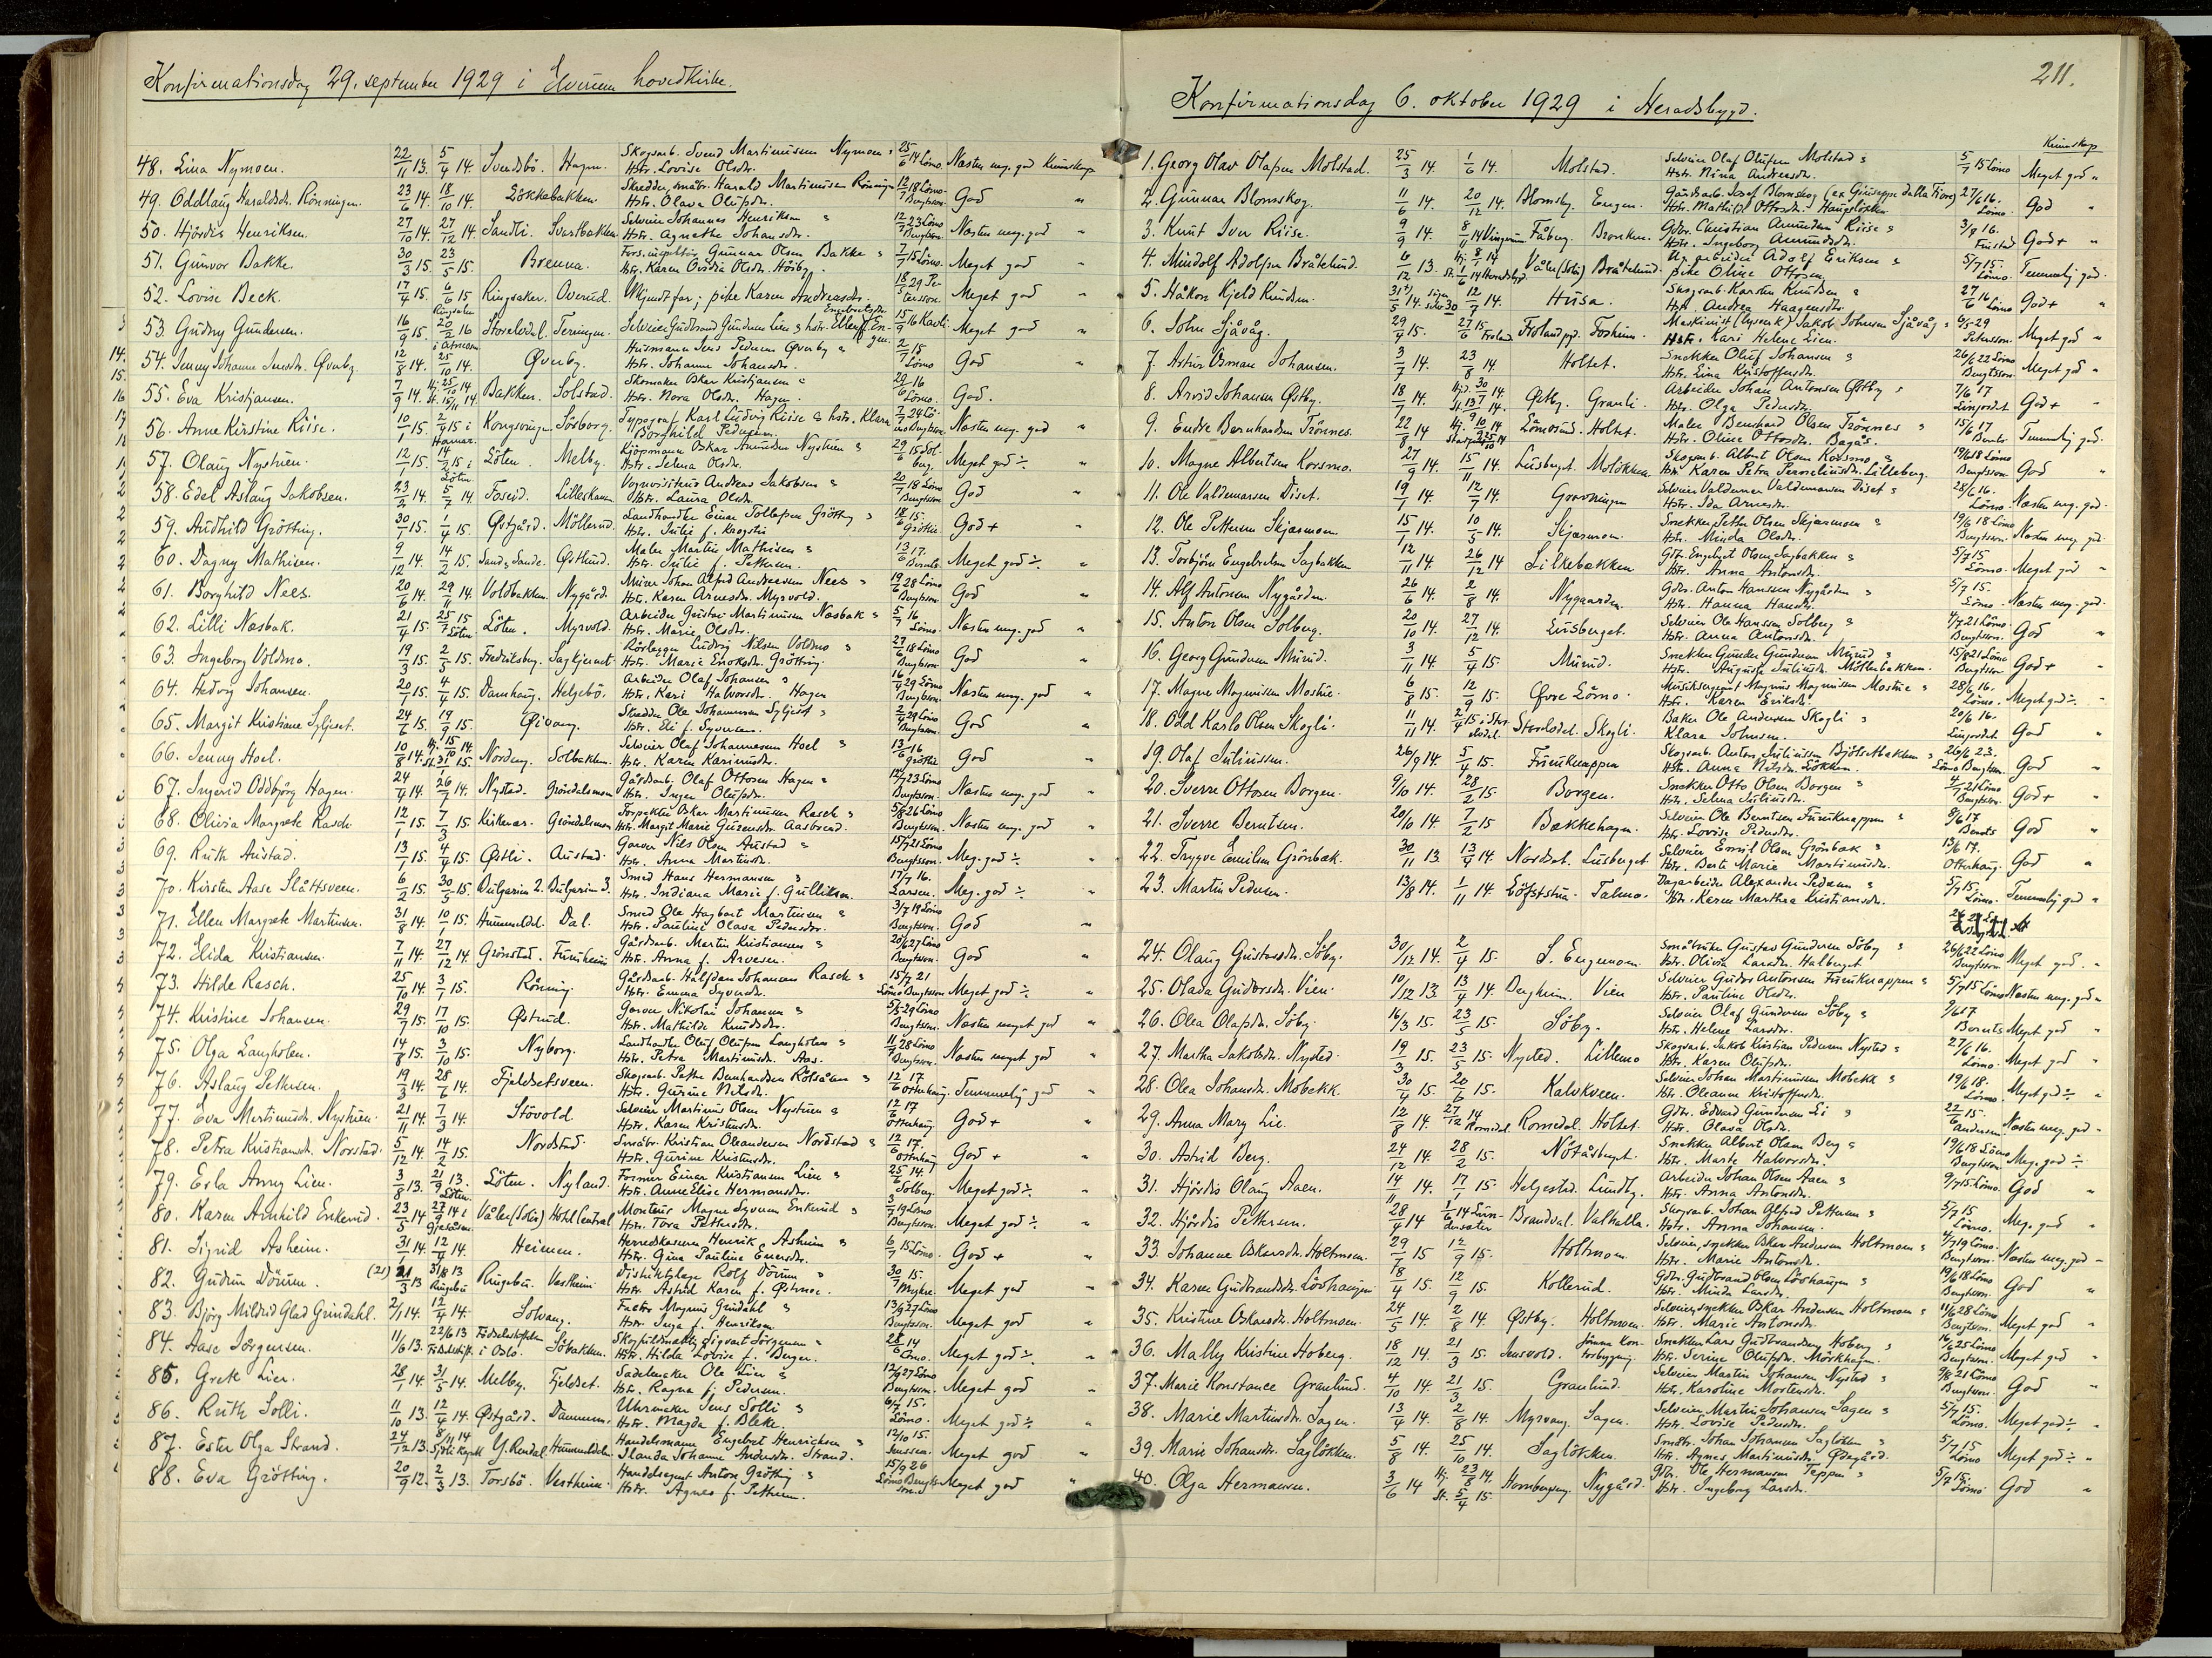 Konfirmationsdag 29. september 1929 i Elverum hovedkirke.
48. Lina Nymoen. 22/11 13. 5/4 14. Svendsbö. Hagen. Skogsarb. Svend Martinusen Nymoen & Hstr. Lovise Olsdr. 25/6 14 Lömo. Næsten meg. god Kundskap
49. Oddlaug Haraldsdr. Rönningen. 23/6 14. 18/10 14. Lökkebakken. Skredder, småbr. Harald Martinusen Rönningen Hstr. Olava Olufsdr. 12/7 18 Lömo- Bengtsson. God "
50. Hjördis Henriksen. 27/10 14. 27/12 14. Sandli. Svartbakken. Selveier Johannes Henriksen " Hstr. Agnethe Johansdr. 12/7 23 Lömo Bengtsson. Næsten meg. god "
51. Gunvor Bakke. 30/3 15. 23/5 15. Brenna. Fors.inspektör Gunnar Olsen Bakke " Hstr. Karen Ovidia Olsdr. Höiby. 7/7 15 Lömo. Meget god "
52. Lovise Beck. 17/4 15. 6/6 15 Ringsaker Ringsaker. Overud. Ukjendt far; pike Karen Andreasdr. 18/5 29 Petersson. Meget god "
53. Gudny Gundersen. 16/9 15. 20/2 16 i Atneosen Storelvdal. Terningen. Selveier Gudbrand Gundersen Lien & hstr. Ellen Engebretsdr. 15/9 16 Kavli. Meget god "
54. Jenny Johanne Jensdr. Øverby. 12/8 14. 25/10 14. Øverby. Husmann Jens Pedersen Øverby " Hstr. Johanne Johansdr. 2/7 15 Lömo God "
55. Eva Kristiansen. 7/9 14. Hj. 25/10 14. St. 15/11 14. Bakken. Solstad. Skomaker Oskar Kristiansen " Hstr. Nora Olsdr. Hagen. 29/6 16 Lömo. God.
56. Anne Kirstine Riise. 10/1 15. 2/4 15 i Hamar. Kongsvinger. Sörborg. Typograf Karl Ludvig Riise & hstr. Klara Borghild Pedersen. 7/7 24 Lömo Bengtsson. Næsten meg. god "
57. Olaug Nystuen. 12/1 15. 14/2 15 i Löten Löten. Melby. Kjöpmann Oskar Amundsen Nystuen " Hstr. Selma Olsdr. 29/6 15 Solberg. Meget god ÷ "
58. Edel Aslaug Jakobsen. 23/2 14. 5/7 14. Foseid. Lilleskauen. Vognvisitør Andreas Jakobsen " Hstr. Laura Olsdr. 20/7 18 Lömo Bengtsson God "
59. Audhild Grötting. 30/1 15. 1/4 15. Østgård. Möllerud. Landhandler Einar Tollefsen Grötting " Hstr. Julie f. Krogstie 18/6 15. Grötten. God + "
60. Dagny Mathisen. 9/12 14. 14/2 15. Sand, Sande. Østlund. Maler Martin Mathisen " Hstr. Julie f. Pettersen. 13/6 17. Bernts. Meget god ÷. "
61. Borghild Nees. 20/6 14. 29/11 14. Voldbakken. Nygård. Murer Johan Alfred Andreassen Nees " Hstr. Karen Arnesdr. Myrvold. 19/6 28 Lömo Bengtsson. God "
62. Lilli Næsbak. 21/4 15. 25/7 15 Löten Löten. Myrvold. Arbeider Gustav Martinusen Næsbak " Hstr. Marie Olsdr. 5/7 16 Lömo. Næsten meg. god "
63. Ingeborg Voldmo. 19/3 15. 2/5 15. Fredriksberg. Sagtjernet. Rörlægger Ludvig Nilsen Voldmo " Hstr. Marie Enoksdr. Grötting. 27/6 18 Lömo Bengtsson God "
64. Hedvig Johansen. 20/1 15. 4/4 15. Damhaug. Helgebö. Arbeider Olaf Johansen " Hstr. Kari Halvorsdr. Hagen 16/4 29 Lömo Bengtsson. Næsten meg. god "
65. Margit Kristiane Syljeset. 24/6 15. 19/9 15. Øivang. Skredder Ole Johannesen Syljeset " Hstr. Eli f. Syversen. 2/4 29 Lömo Bengtsson. God "
66. Jenny Hoel. 10/8 14. Hj. 15/10 14. St. 31/1 15. Nordeng. Solbakken. Selveier Olaf Johannesen Hoel " Hstr. Karen Karinusdr. 13/6 16 Gröttie God "
67. Ingerid Oddbjörg Hagen. 24/4 14. 26/7 14. Nystad. Gröndalsmoen Gårdsarb. Olaf Ottosen Hagen " Hstr. Inger Olufsdr. 12/7 23 Lömo Bengtsson. Næsten meg. god "
68. Olivia Margrete Rasch. 12/1 15. 7/3 15. Kirkenær. Gröndalsmoen Forpakter Oskar Martinusen Rasch " Hstr. Margit Marie Gurensdr. Aasbrend. 5/8 26 Lömo Bengtsson. Næsten meg. god "
69. Ruth Austad. 13/1 15. 4/4 15. Østli. Austad. Garver Nils Olsen Austad " Hstr. Anna Martinsdr. 15/7 21 Lömo Bengtsson. Meg. god ÷. "
70. Kirsten Aase Slåttsveen. 6/2 15. 30/5 15. Bulgarien 2. Bulgarien 3. Smed Hans Hermansen " Hstr. Indiana Marie f. Gulliksen. 17/7 16. Larsen. Meg. god ÷ "
71. Ellen Margrete Martinsen. 31/8 14. 10/1 15. Hummeldal. Dal. Smed Ole Hagbart Martinsen " Hstr. Pauline Olava Pedersdr. 3/7 19 Lömo Bengtsson. God "
72. Elida Kristiansen. 7/11 14. 27/12 14. Grönstad. Furuheim Gårdsarb. Martin Kristiansen " Hstr. Anna f. Arvesen. 20/6 27 Lömo Bengtsson. God "
73. Hilde Rasch. 25/10 14. 3/1 15. Rönning. Gårdsarb. Halfdan Johansen Rasch " Hstr. Emma Syversdr. 15/7 21 Lömo Bengtsson Meget god ÷ "
74. Kristine Johansen. 29/7 15. 17/10 15. Østrud. Garver Nikolai Johansen " Hstr. Mathilde Knudsdr. 5/5 29 Lömo Bengtsson. Næsten meget god "
75. Olga Langholen. 14/8 15. 3/10 15. Nyborg. Landhandler Oluf Olufsen Langholen " Hstr. Petra Martinusdr. Aas. 11/7 28 Lömo Bengtsson. Næsten meget god "
76. Aslaug Pettersen. 19/3 14. 28/6 14. Fjeldsetsveen. Skogsarb. Petter Bernhardsen Rötsålen " Hstr. Gurine Nilsdr. 12/6 17 Otterhaug. Temmelig god "
77. Eva Martinusdr. Nystuen. 21/11 14. 7/3 14. Stövold. Selveier Martinus Olsen Nystuen " Hstr. Karen Kristensdr. 12/6 17 Otterhaug God + "
78. Petra Kristiansdr. Norstad. 5/12 14. 14/2 15. Nordstad. Småbr. Kristian Oleandersen Nordstad " Hstr. Gurine Kristensdr. 12/6 17. Otterhaug God + "
79. Erla Anny Lien. 3/8 13. 21/9 13. Löten. Löten. Nyland. Former Einar Kristiansen Lien " Hstr. Anne Elise Hermansdr. 25/6 14. Solberg. Meget god ÷. "
80. Karen Arnhild Enkerud. 23/5 14 27/9 14 i Gjesåsen. Våler (Solör) Hotel Central Montör Magne Syversen Enkerud " Hstr. Tora Pettersdr. 3/7 19 Lömo Bengtsson. Meget god ÷. "
81. Sigrid Asheim. 31/1 14. 12/4 14. Heimen. Herredskasserer Henrik Asheim " Hstr. Gina Pauline Einersdr. 6/7 15 Lömo. God + "
82. Gudrun Dörum. (21) 21/3 13 31/8 13 Ringebu Ringebu. Vestheim Distriktslæge Rolf Dörum " Hstr. Astrid Karen f. Østmoe. 30/7 15. Myhre. Meget god "
83. Björg Mildrid Glad Grindahl. 2/1 14. 12/4 14. Solvang. Faktor Magnus Grindahl " Hstr. Inga f. Henriksen. 13/9 27 Lömo Bengtsson. Meget god "
84. Aase Jörgensen. 11/6 13. 22/6 13 Födselsstiftelsen i Oslo. Söbakken. Skogfuldmektig Sigvart Jörgensen " Hstr. Hilda Lovise f. Berger. 28/6 14 Lömo. Meget god ÷ "
85. Grete Lier. 28/1 14. 31/5 14. Melby. Fjeldset. Sadelmaker Ole Lier " Hstr. Ragna f. Pedersen. 12/9 27 Lömo Bengtsson. Meget god "
86. Ruth Solli. 11/10 13. 12/4 14. Østgård. Dammen. Uhrmaker Jens Solli " Hstr. Magda f. Bleke. 6/7 15. Lömo. Meget god ÷ "
87. Ester Olga Strand. 24/12 13. 8/11 14 Sjöli Kapell Y. Rendal Hummeldalen. Handelsmann Engebret Henriksen " Jhanda Johanne Andersdr. Strand. 12/10 15. Jenssen. Meget god "
88. Eva Grötting. 20/9 12. 2/3 13. Torsbö. Vestheim. Handelsagent Anton Grötting " Hstr. Agnes f. Pettersen. 15/9 26 Lömo Bengtsson. Meget god "
211.
Konfirmationsdag 6. oktober 1929 i Heradsbygd.
Kunnskap
1. Georg Olav Olafsen Molstad. 25/3 14. 1/6 14. Molstad. Selveier Olaf Olufsen Molstad " Hstr. Nina Andreasdr. 5/7 15 Lömo Meget god "
2. Gunnar Blomskog. 11/6 14. 20/12 14. Blomsby. Engen. Gårdsarb. Josef Blomskog (ex Giuseppe dalla Fiore) Hstr. Mathilde Ottosdr. Haugslökken. 27/6 16. Lömo. God "
3. Knut Iver Riise. 9/9 14. 8/11 14 Vingrom. Fåberg. Bronken. Gdbr. Christian Amundsen Riise " Hstr. Ingeborg Amundsdr. 3/8 16. Fristad God + "
4. Mindolf Adolfsen Bråtelund. 6/12 13. Hj. 8/1 14 St. 1/6 14 Heradsbygd. Våler (Solör) Bråtelund. Ug. arbeider Adolf Eriksen " pike Oline Ottosen. 5/7 15. Lömo. Temmelig god.
5. Håkon Kjeld Knudsen. 31/5 14. 12/7 14. Husa. Skogsarb. Karsten Knudsen " Hstr. Andrea Haagensdr. 27/6 16 Lömo God + "
6. John Sjåvåg. 29/4 15. 27/6 15 Froland. Froland pgd. Forsheim. Maskinist (lysverk) Jakob Johnsen Sjåvåg " Hstr. Kari Helene Lien. 6/5 29 Petersson. Meget god "
7. Artur Osman Johansen. 3/7 14. 23/8 14. Holtet. Snekker Oluf Johansen " Hstr. Lina Kristoffersdr. 26/6 22 Lömo Bengtsson Meget god "
8. Arvid Johansen Østby. 18/7 14. Hjd. 30/7 14. St. 13/9 14. Østby. Granli. Arbeider Johan Antonsen Østby " Hstr. Olga Pedersdr. 7/6 17 Linjordet God + "
9. Endre Bernhardsen Trönnes. 22/8 14 Hj. 9/9 14 25/10 14 Lömosund. Holtet. Maler Bernhard Olsen Trönnes " Hstr. Oline Ottosdr. Bagås. 15/6 17 Bernts. Temmelig god.
10. Magne Albertsen Korsmo. 27/9 14. 15/11 14. Lusberget. Molökken. Skogsarb. Albert Olsen Korsmo " Hstr. Karen Petra Pernelinsdr. Lilleberg. 19/6 18 Lömo Bengtsson God "
11. Ole Valdemarsen Diset. 19/1 14. 12/7 14. Grovningen Selveier Valdemar Valdemarsen Diset " Hstr. Ida Arnesdr. 28/6 16. Lömo. Næsten meg. god.
12. Ole Pettersen Skjærmoen. 15/1 14. 10/5 14. Skjærmoen. Snekker Petter Olsen Skjærmoen " Hstr. Minda Olsdr. 19/6 18 Lömo Bengtsson. Næsten meg. god.
13. Torbjörn Engebretsen Sagbakken 12/11 14 26/12 14 Lilkebakken Gdbr. Engebret Olsen Sagbakken " Hstr. Anna Antonsdr. 5/7 15. Lömo. Meget god "
14. Alf Antonsen Nygården. 26/6 14. 2/8 14. Nygaarden. Gdbr. Anton Hansen Nygården " Hstr. Hanna Hansdr. 5/7 15. Lömo. Næsten meg. god.
15. Anton Olsen Solberg. 20/10 14. 27/12 14. Lusberget. Selveier Ole Hanssen Solberg " Hstr. Anna Antonsdr. 4/7 21 Lömo. Bengtsson. God "
16. Georg Gundersen Murud. 3/11 14. 5/4 15. Murud. Snekker Gunder Gundersen Murud " Hstr. Augusta Juliusdr. Möllerbakken. 15/8 21 Lömo Bengtsson God + "
17. Magne Magnussen Mostue. 6/8 15. 12/9 15. Øvre Lömo. Musiksergeant Magnus Magnussen Mostue " Hstr. Karen Eriksdr. 28/6 16. Lömo. Meget god ÷. "
18. Odd Karlo Olsen Skogli. 11/11 14. 2/4 15 i Storelvdal. Storelvdal. Skogli. Baker Ole Andersen Skogli " Klara Johnsen. 20/6 16. Linjordet. God "
19. Olaf Juliussen. 26/9 14. 5/4 15. Furuknappen Skogsarb. Anton Juliussen Bjölsetbakken " Hstr. Anna Nilsdr. Lökken. 26/6 23. Lömo Bengtsson. God "
20. Sverre Ottosen Borgen. 9/10 14. 28/2 15. Borgen. Snekker Otto Olsen Borgen " Hstr. Selma Juliusdr. 4/7 21 Lömo Bengtsson God + "
21. Sverre Berntsen. 20/10 14. 7/2 15 Bækkehagen. Selveier Ole Berntsen Furuknappen " Hstr. Lovise Pedersdr. 9/6 17 Bernts God "
22. Trygve Emilsen Grönbæk. 30/11 13. 13/4 14. Nordset. Lusberget. Selveier Emil Olsen Grönbæk " Hstr. Berte Marie Martinusdr. 13/6 17. Otterhaug. God "
23. Martin Pedersen. 13/8 14. 1/11 14 Löfstrua. Talmo. Dagarbeider Alexander Pedersen " Hstr. Karen Marthea Kristiansdr. 5/7 15. Lömo. Temmelig god "
24. Olaug Gustavsdr. Söby. 30/12 14. 2/4 15. S. Engemoen. Småbruker Gustav Gundersen Söby " Hstr. Olivia Larsdr. Halberget 26/6 22 Lömo Bengtsson Meget god. "
25. Olava Gudorsdr. Vien. 10/12 13. 13/4 14. Bergheim. Vien Selveier Gudor Antonsen Furuknappen " Hstr. Pauline Olsdr. 5/7 15 Lömo Næsten meg. god "
26. Olea Olafsdr. Söby. 16/3 15. 23/5 15. Söby. Selveier Olaf Gundersen Söby " Hstr. Helene Larsdr. 9/6 17 Bernts. Meget god "
27. Martha Jakobsdr. Nysted. 19/3 15. 23/5 15. Nysted. Lillemo Skogsarb. Jakob Kristian Pedersen Nysted " Hstr. Karen Olufsdr. 27/6 16. Lömo. Meget god "
28. Olea Johansdr. Mobekk. 30/4 15. 20/6 15. Kalvkveen. Selveier Johan Martinussen Mobekk " Hstr. Oleanne Kristoffersdr. 19/6 18. Lömo. Meget god ÷. "
29. Anna Mary Lie. 12/8 14. 27/12 14 Romedal. Romedal. Holtet. Gdbr. Edvard Gundersen Li " Hstr. Olava Olsdr. 22/6 15. Andersen. Næsten meg. god "
30. Astrid Berg. 24/12 14. 28/2 15. Nötåsberget. Snekker Albert Olsen Berg " Hstr. Marte Halvorsdr. 19/6 18 Lömo Bengtsson. Meg. god ÷.
31. Hjördis Olaug Aaen. 14/11 14. 17/1 15. Helgestad. Lundby. Arbeider Johan Olsen Aaen " Hstr. Anna Antonsdr. 9/7 15 Lömo. God "
32. Hjördis Pettersen. 28/4 14 1/6 14 Lundersæter Brandval. Valhalla. Skogsarb. Johan Alfred Pettersen " Hstr. Anna Johansen. 5/7 15 Lömo. Meg. god "
33. Johanne Oskarsdr. Holtmoen. 29/7 15 12/9 15. Holtmoen Selveier, snekker Oskar Andersen Holtmoen " Hstr. Marie Antonsdr. 4/7 19 Lömo. Bengtsson. Næsten meg. god "
34. Karen Gudbrandsdr. Lövhaugen 8/4 15. 12/9 15. Kollerud. Gdbr. Gudbrand Olsen Lövhaugen " Hstr. Minda Larsdr. 19/6 18 Lömo Bengtsson. God "
35. Kristine Oskarsdr. Holtmoen. 24/5 14. 2/8 14. Østby. Holtmoen. Selveier, snekker Oskar Andersen Holtmoen " Hstr. Marie Antonsdr. 11/6 28 Lömo Bengtsson. Meget god "
36. Mally Kristine Hoberg. 18/12 14. 21/3 15. Jensvold. Jömna Kontorbygning. Snekker Lars Gudbrandsen Hoberg " Hstr. Serine Olufsdr. Mörkhagen. 16/6 25 Lömo Bengtsson. Meget god "
37. Marie Konstance Granlund. 4/10 14. 21/3 15. Granlund. Selveier Martin Johansen Nysted " Hstr. Karoline Mortensdr. 9/8 21 Lömo Bengtsson. God "
38. Marie Martinsdr. Sagen. 13/4 14. 2/8 14. Myrvang. Sagen. Selveier Martin Johansen Sagen " Hstr. Lovise Pedersdr. 5/7 15. Lömo. Meget god ÷. "
39. Marie Johansdr. Saglökken. 5/8 14. 25/10 14. Saglökken. Småbr. Johan Johansen Saglökken " Hstr. Agnes Martinusdr. Ödegård. 5/7 15 Lömo Meget god ÷ "
40. Olga Hermansen. 3/6 14 Hj. 23/8 14. St. 5/4 15. Hornbergseng. Nygård. Gdbr. Ole Hermansen Teppen " Hstr. Ingeborg Larsdr. 5/7 15. Lömo God "